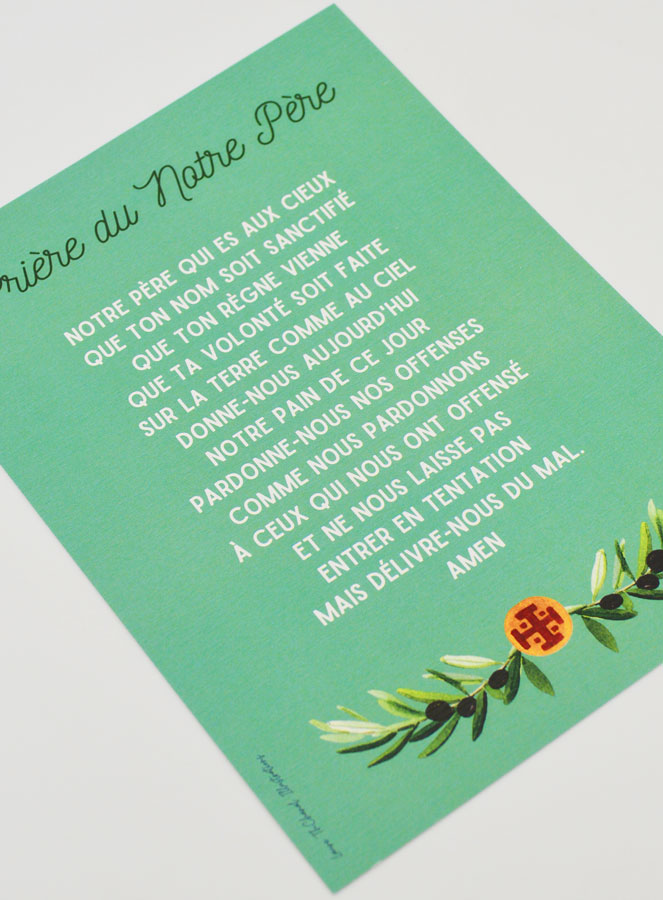 Prière du Notre Père
NOTRE PÈRE QUI ES AUX CIEUX
QUE TON NOM SOIT SANCTIFIÉ
QUE TON RÈGNE VIENNE
QUE TA VOLONTÉ SOIT FAITE
SUR LA TERRE COMME AU CIEL
DONNE-NOUS AUJOURD'HUI
NOTRE PAIN DE CE JOUR
PARDONNE-NOUS NOS OFFENSES
COMME NOUS PARDONNONS
À CEUX QUI NOUS ONT OFFENSÉ
ET NE NOUS LAISSE PAS
ENTRER EN TENTATION
MAIS DÉLIVRE-NOUS DU MAL.
AMEN